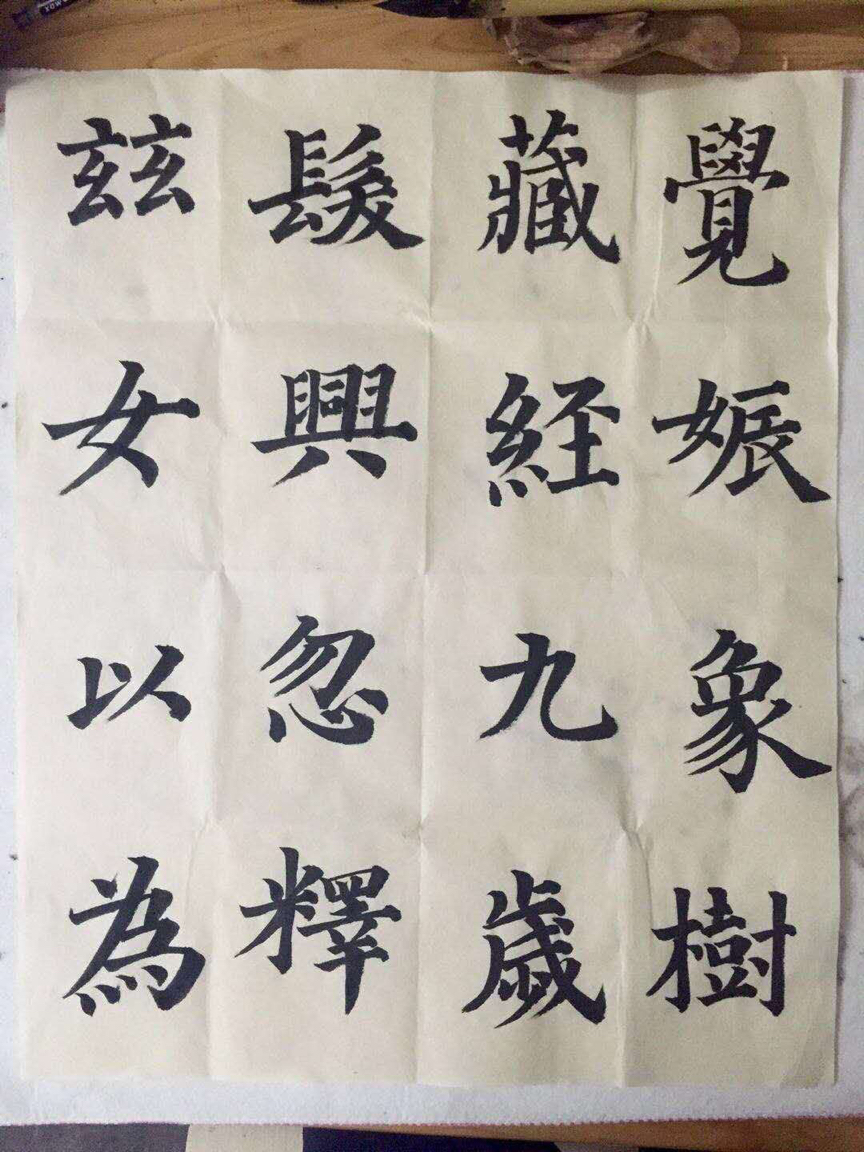 覺娠象樹
藏經九歲
髮興忽釋
玆女以為